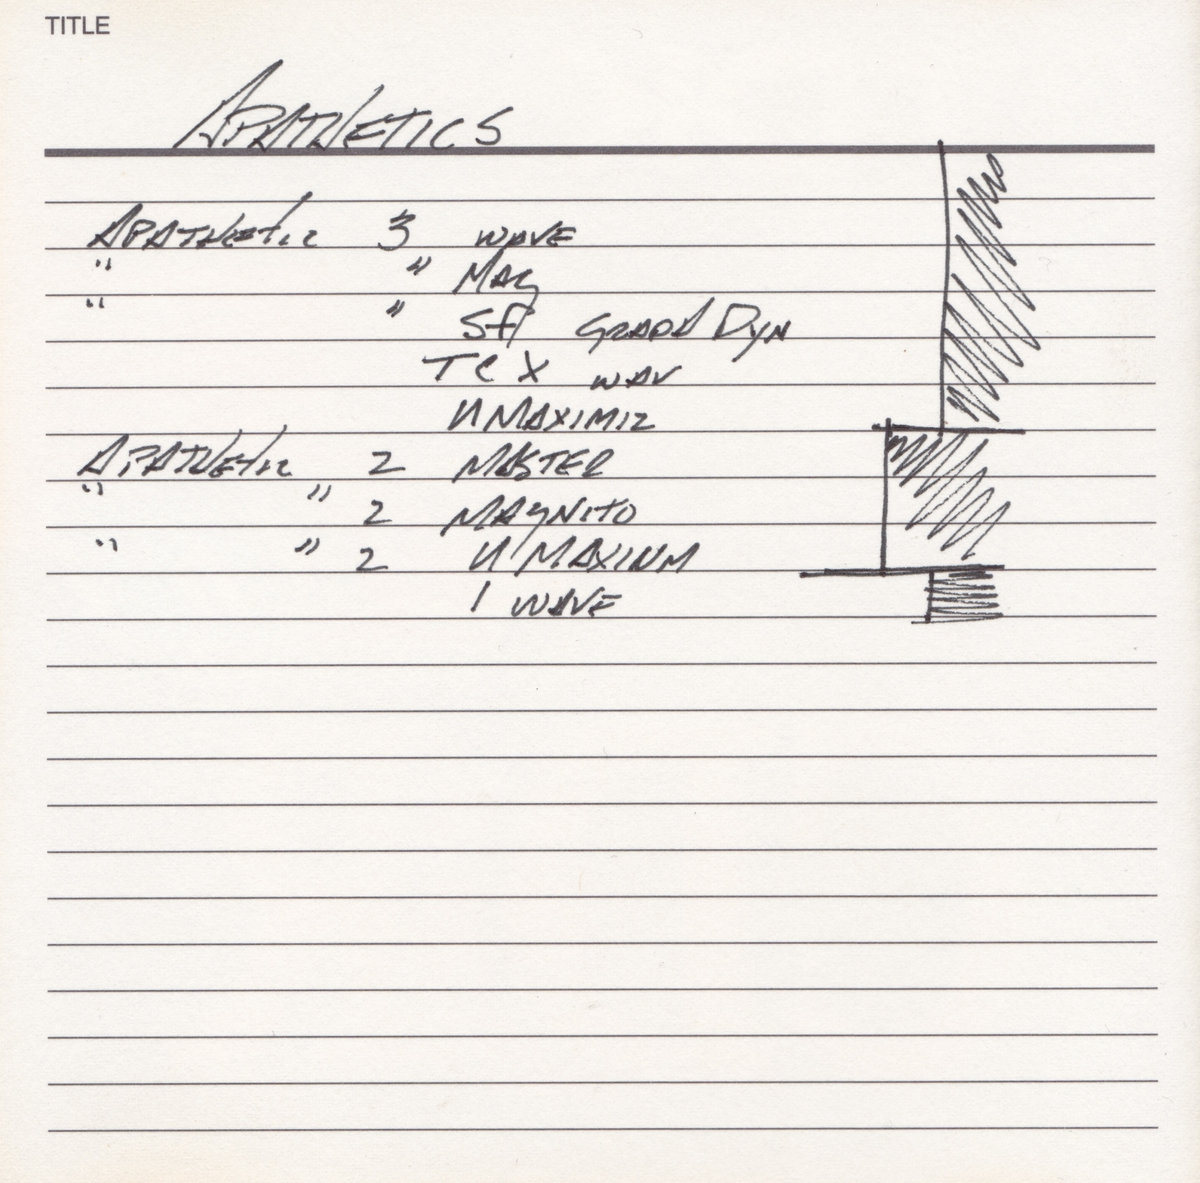 TITLE
APATHETICS
APATHETIC 3 WAVE
" " MAG
" " Sf GRAPH DYN
TC X WAV
MAXIMIZ
APATHETIC 2 MASTER
" " 2 MAGNITO
" " 2 MAXIUM
1 WAVE